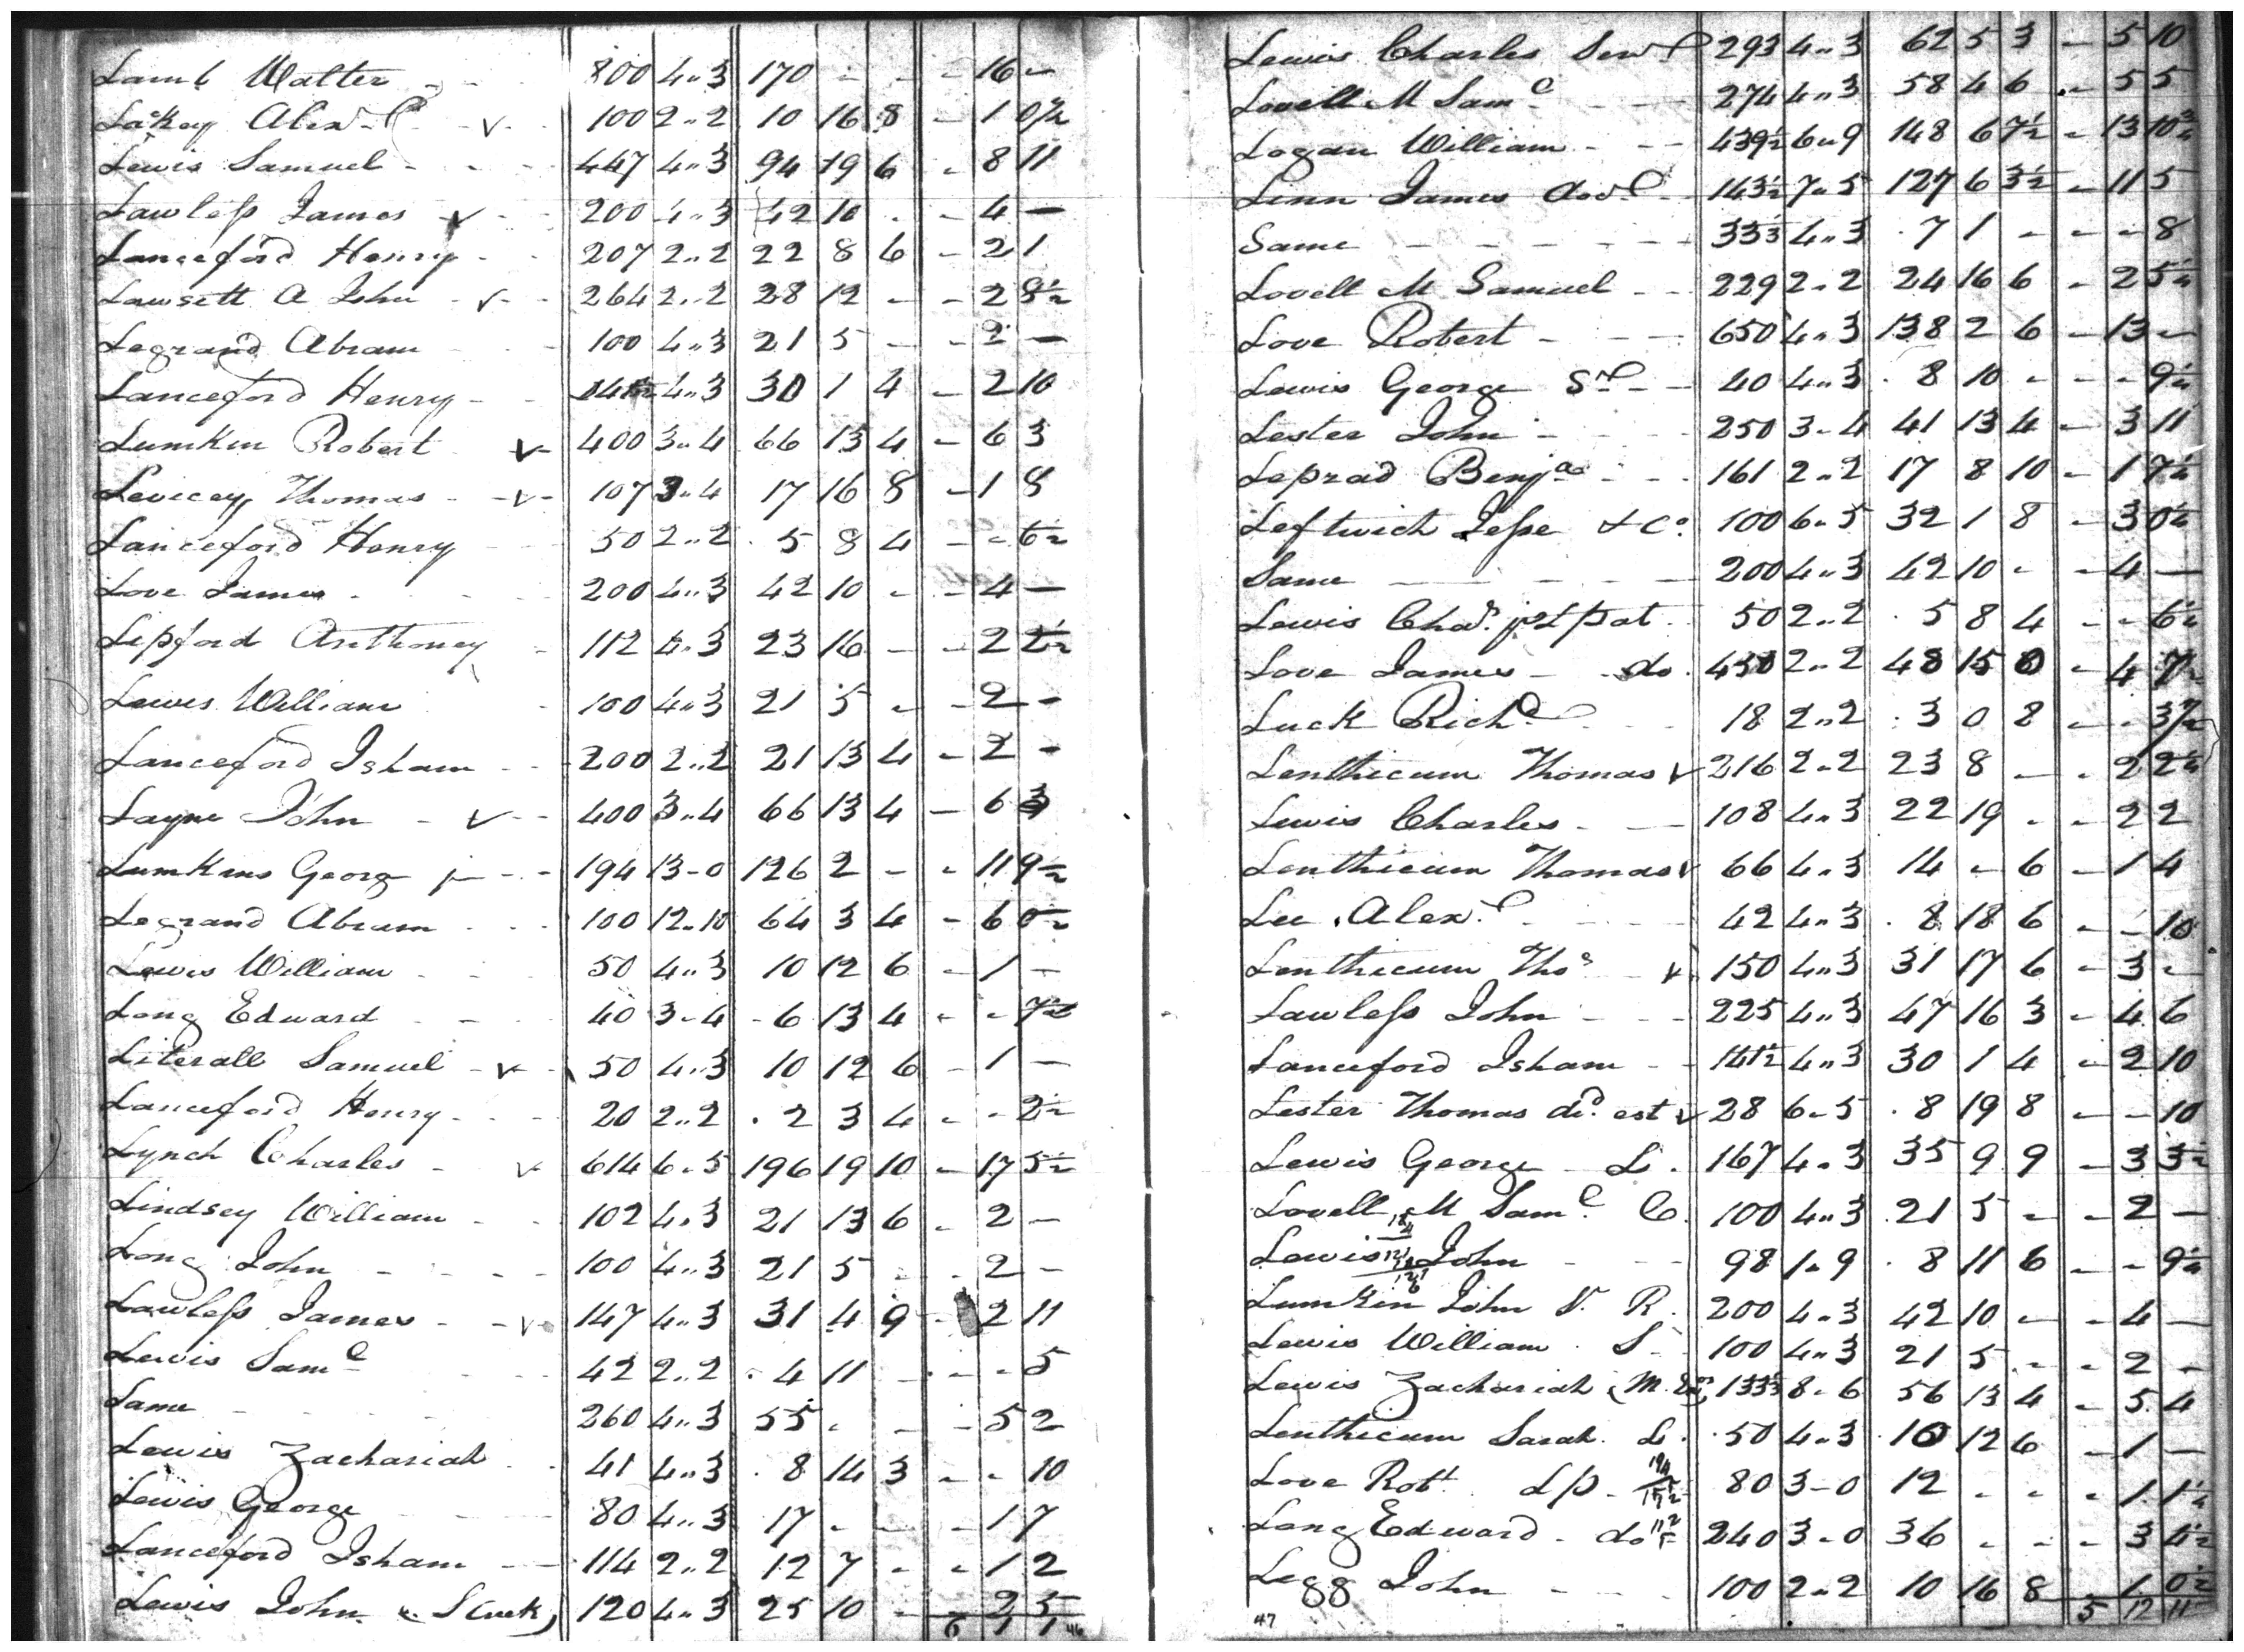 Lamb Walter - - 800 4..3 170 - - - 16 -
Lackey Alexr. - v - 100 2..2 10 16 8 - 1 0½
Lewis Samuel - - - 447 4..3 94 19 6 - 8 11
Lawless James - v - - 200 4..3 42 10 . - 4 -
Lanceford Henry - - 207 2..2 22 8 6 - 2 1
Lawsett A John - v - - 264 2..2 28 12 - - 2 8½
Legrand Abram - - 100 4..3 21 5 - - 2 -
Lanceford Henry - - 141½ 4..3 30 1 4 - 2 10
Lumkin Robert v - 400 3..4 66 13 4 - 6 3
Levicey Thomas - - v - 107 3..4 17 16 8 - 1 8
Lanceford Henry - - 50 2..2 . 5 8 4 - - 6½
Love James - - - 200 4..3 42 10 - - 4 -
Lipford Anthoney - 112 4..3 23 16 - - 2 2½
Lewis William - 100 4..3 21 5 - - 2 -
Lanceford Isham - - 200 2..2 21 13 4 - 2 -
Layne John - v - - 400 3..4 66 13 4 - 6 3
Lumkins George jr - - 194 13-0 126 2 - - 11 9½
Legrand Abram - - - 100 12..10 64 3 4 - 6 0½
Lewis William - - 50 4..3 10 12 6 - 1 -
Long Edward - - 40 3-4 - 6 13 4 - - 7½
Literall Samuel - v - 50 4..3 10 12 6 - 1 -
Lanceford Henry - - - 20 2..2 . 2 3 4 - - 2½
Lynch Charles - v 614 6..5 196 19 10 - 17 5½
Lindsey William - - 102 4..3 21 13 6 - 2 -
Long John - - - - 100 4..3 21 5 - - 2 -
Lawless James - - v - 147 4..3 31 4 9 - 2 11
Lewis Saml - - - 42 2..2 . 4 11 - - - 5
Same - - - - 260 4..3 55 - - - 5 2
Lewis Zachariah - - 41 4..3 . 8 14 3 - - 10
Lewis George - - - 80 4..3 17 - - - 1 7
Lanceford Isham - - 114 2..2 12 7 - - 1 2
Lewis John (S Creek) 120 4..3 25 10 - - 2 5
6 1 1 46
Lewis Charles Senr 293 4..3 62 5 3 - 5 10
Lovell M Saml - - - 274 4..3 58 4 6 - 5 5
Logan William - - - 439½ 6..9 148 6 7½ - 13 10¾
Linn James - 143½ 7..5 127 6 3½ - 11 5
Same - - - - - - 33⅓ 4..3 . 7 1 - - - 8
Lovell M Samuel - - 229 2..2 24 16 6 - 2 5¼
Love Robert - - - 650 4..3 138 2 6 - 13 -
Lewis George Sr - - 40 4..3 . 8 10 - - - 9¼
Lester John - - - 250 3-4 41 13 4 - 3 11
Leprad Benja - - - 161 2..2 17 8 10 - 1 7¼
Leftwich Jesse & Co. 100 6..5 32 1 8 - 3 0¼
Same - - - - - 200 4..3 42 10 - - 4 -
Lewis Chas. pr pat. 50 2..2 . 5 8 4 - - 6¼
Love James - do. 450 2..2 48 15 0 - 4 7½
Luck Richd - - 18 2..2 . 3 0 8 - - 3½
Lenthicum Thomas v 216 2..2 23 8 - - 2 2¼
Lewis Charles - - 108 4..3 22 19 - - 2 2
Lenthicum Thomas v 66 4..3 14 - 6 - 1 4
Lee Alexr. - - - 42 4..3 . 8 18 6 - - 10
Lenthicum Thos - v 150 4..3 31 17 6 - 3 -
Lawless John - - - 225 4..3 47 16 3 - 4 6
Lanceford Isham - - 141½ 4..3 30 1 4 - 2 10
Lester Thomas decd. est v 28 6..5 . 8 19 8 - - 10
Lewis George - L. 167 4..3 35 9 9 - 3 3½
Lovell M Saml. C. 100 4..3 21 5 - - 2 -
Lewis John - - - 98 1..9 . 8 11 6 - - 9¼
Lumkin John V. R. 200 4..3 42 10 - - 4 -
Lewis William . S - 100 4..3 21 5 - - 2 -
Lewis Zachariah 133⅓ 8..6 56 13 4 - 5 4
Lenthicum Sarah. L. 50 4..3 10 12 6 - 1 -
Love Robt. Lp. 80 3-0 12 - - - 1 1¼
Long Edward - do 240 3-0 36 - - - 3 4½
Legg John - - - 100 2..2 10 16 8 1 0½
88
47 5 12 11